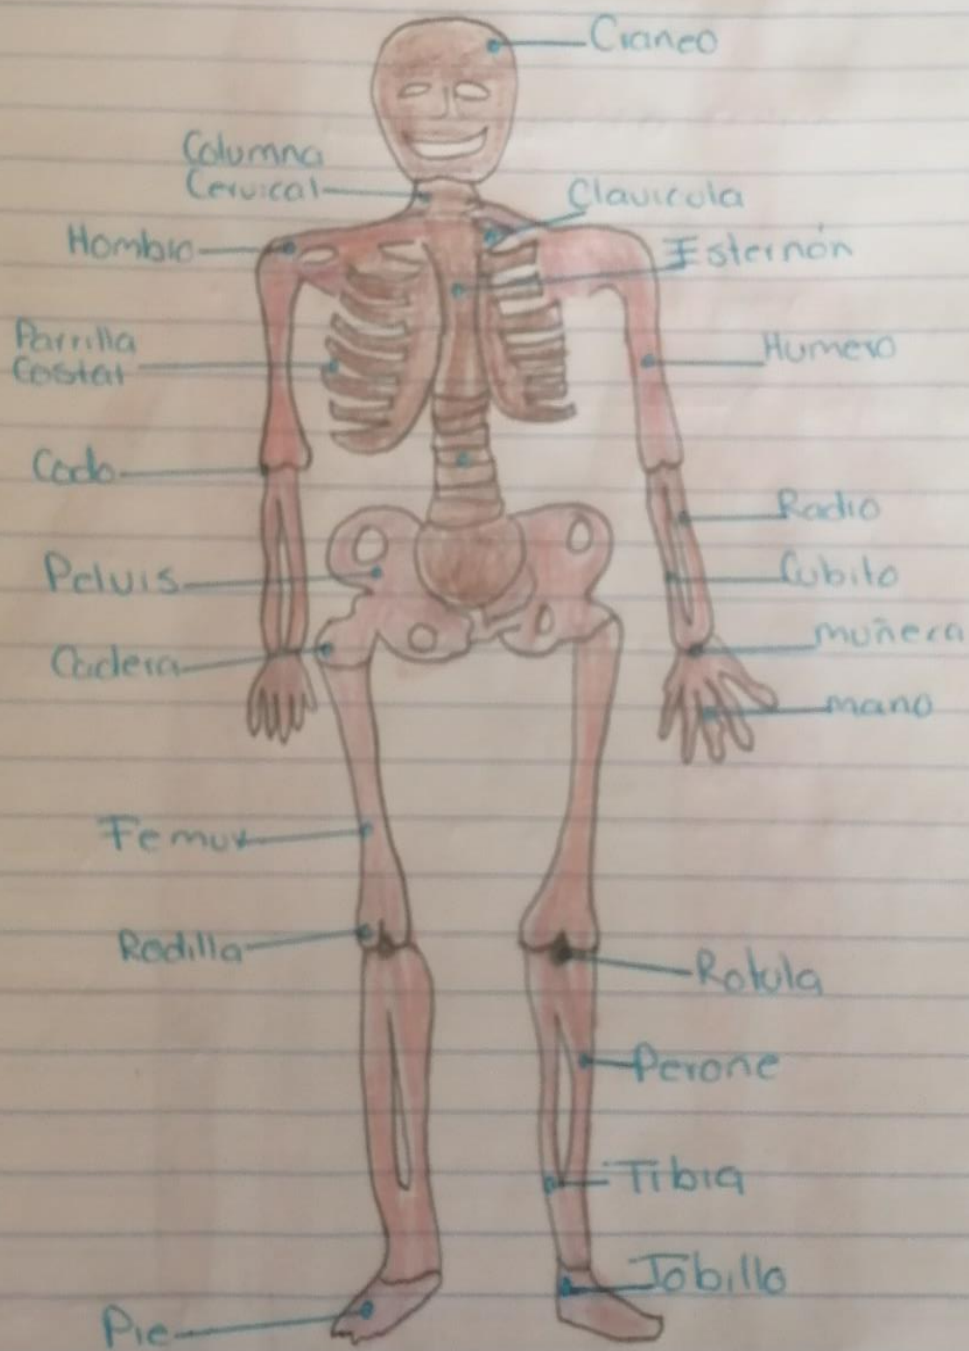 Craneo
Columna
Cervical
Clavicola
Hombro
Esternón
Parrilla
Costal
Humero
Codo
Radio
Pelvis
Cubito
muñeca
Cadera
mano
Femur
Rodilla
Rotula
Perone
Tibia
Tobillo
Pie